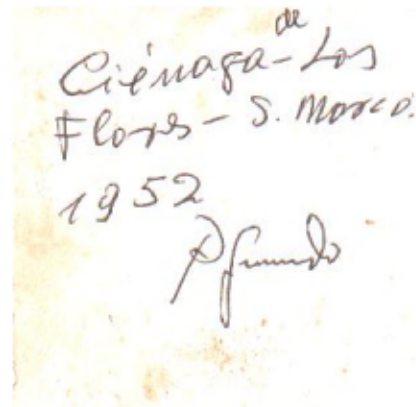 Ciénaga de Los
Flores - S. Marco.
1952